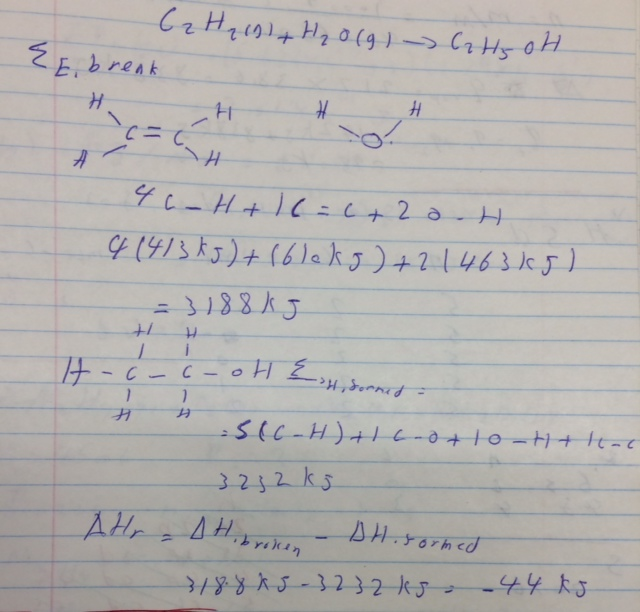 C₂H₂(g) + H₂O(g) → C₂H₅OH
Σ E, break
H H H H
C = C O
A H
4C-H + 1C=C + 2O-H
4(413kJ) + (610kJ) + 2(463kJ)
= 3188kJ
H H
H - C - C - OH Σ H, formed =
H H
= 5(C-H) + 1C-O + 1O-H + 1C-C
3232kJ
ΔHr = ΔH.broken - ΔH.formed
3188kJ - 3232kJ = -44kJ